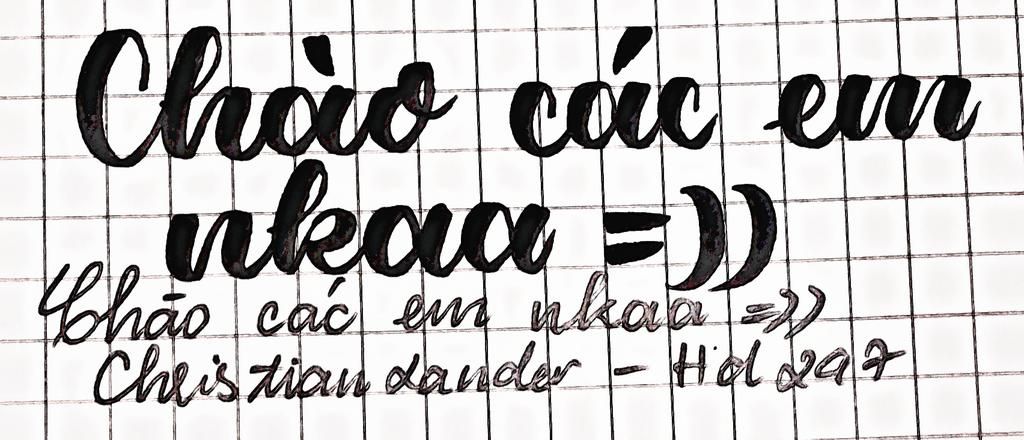 Chào các em
nkaa =))
Chào các em nkaa =))
Christian Lander - Hd 297